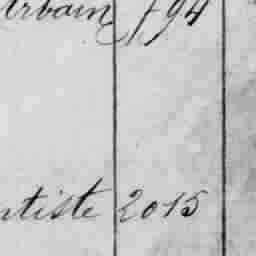 urbain 194
tiste 2015